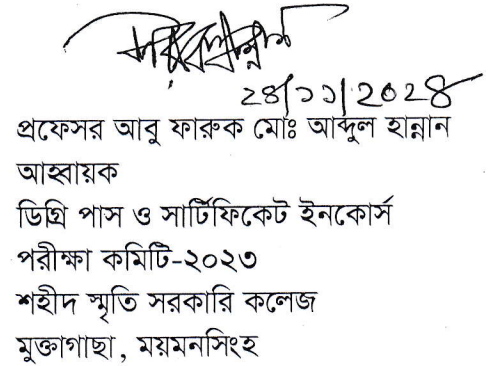 ২৪/১১/২০২৪
প্রফেসর আবু ফারুক মোঃ আব্দুল হান্নান
আহ্বায়ক
ডিগ্রি পাস ও সার্টিফিকেট ইনকোর্স
পরীক্ষা কমিটি-২০২৩
শহীদ স্মৃতি সরকারি কলেজ
মুক্তাগাছা, ময়মনসিংহ